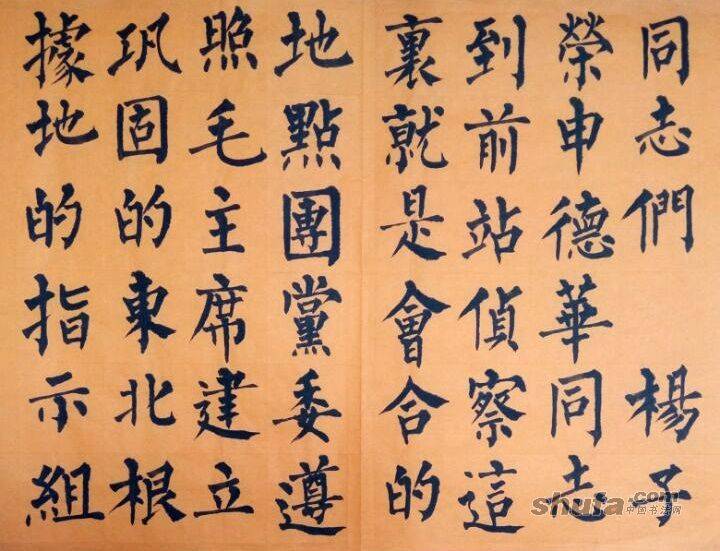 同志們　楊子
榮申德華同志
到前站偵察這
裏就是會合的
地點團黨委遵
照毛主席建立
巩固的東北根
據地的指示組
shufa.com
中国书法网